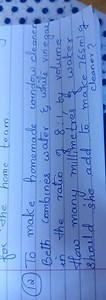 for the home team
(12) To make homemade window cleaner
Beth combines water & white vinegar
in the ratio of 8:1, by volume.
How many millimetres of water
should she add to make 765ml of
cleaner?